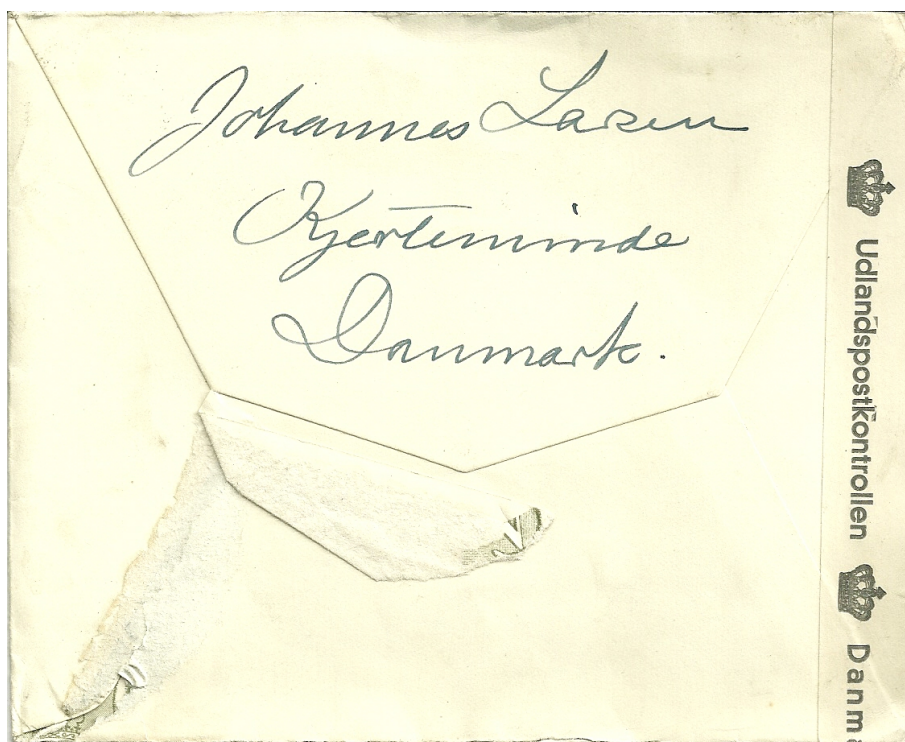 Johannes Larsen
Kjerteminde
Danmark.
Udlandspostkontrollen
Danm